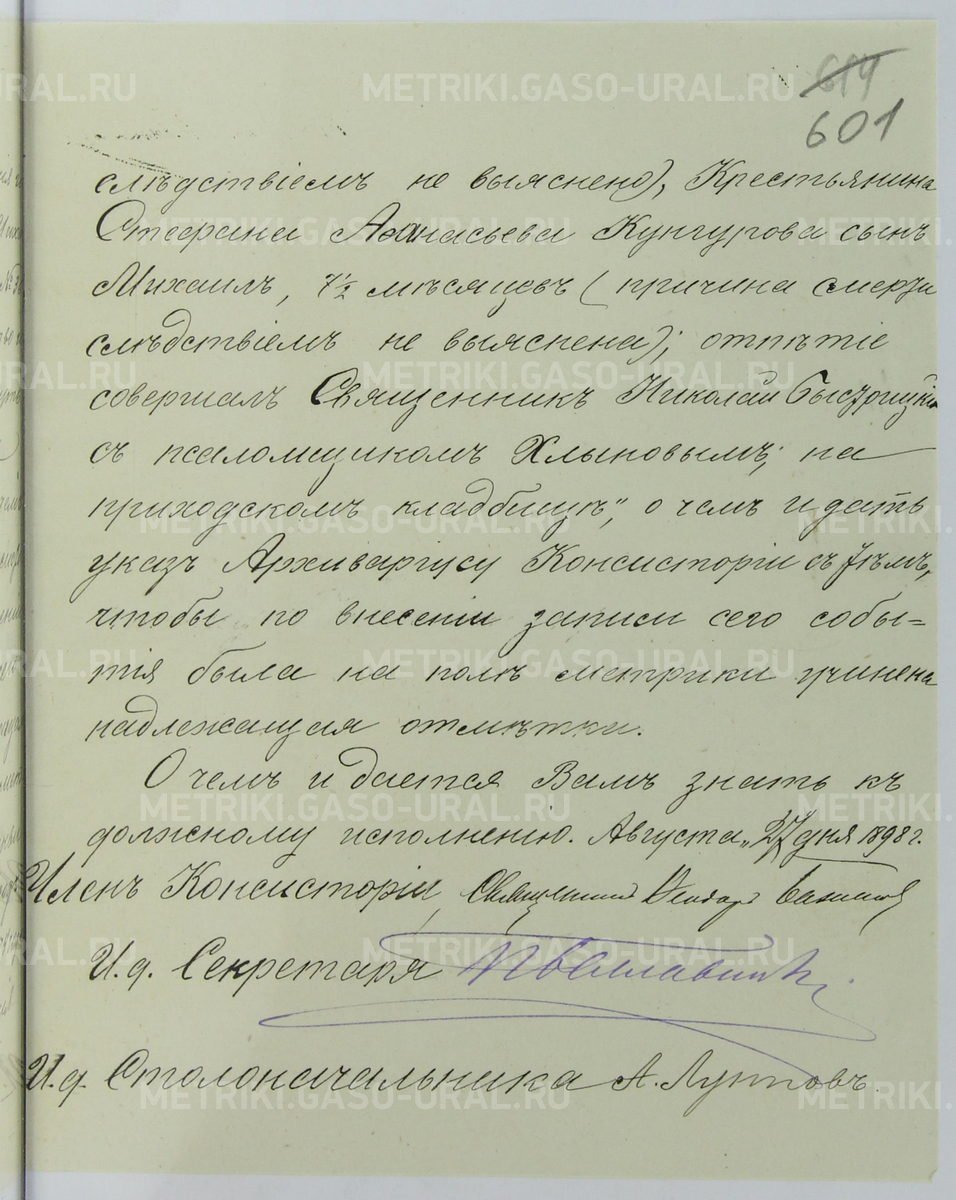 614
601
слѣдствіемъ не выяснено), Крестьянина
Стефана Аѳанасьева Кунгурова сынъ
Михаилъ, 7½ мѣсяцевъ (причина смерти
слѣдствіемъ не выяснена); отпѣтіе
совершалъ Священникъ Николай Быстрицкій
съ псаломщикомъ Хлыновымъ; на
приходскомъ кладбищѣ", о чемъ и дать
указъ Архиваріусу Консисторіи съ тѣмъ,
чтобы по внесеніи записи сего собы=
тія была на полѣ метрики учинена
надлежащая отмѣтка.
О чемъ и дается Вамъ знать къ
должному исполненію. Августа „27 дня 1898 г.
Членъ Консисторіи, Священникъ
И. д. Секретаря
И. д. Столоначальника А. Лупповъ.
METRIKI.GASO-URAL.RU